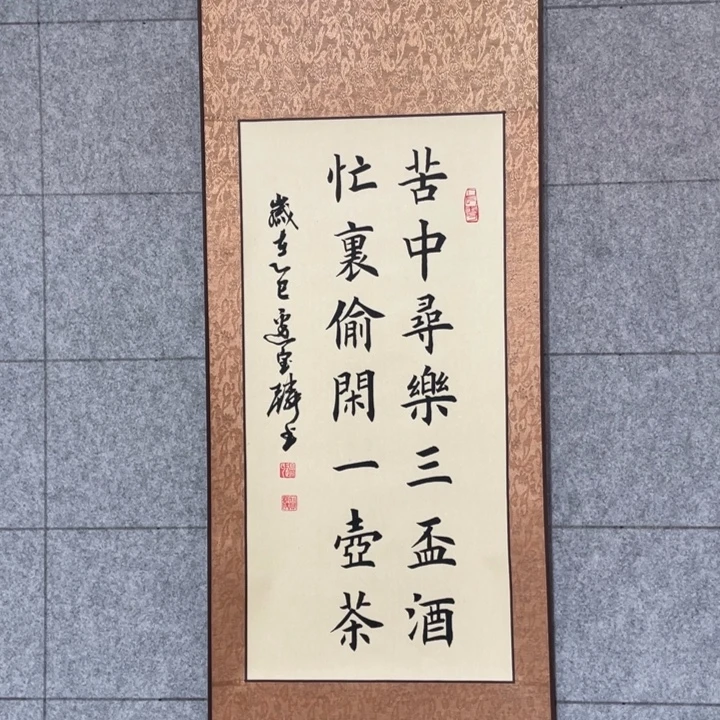 苦中尋樂三盃酒
忙裏偷閑一壺茶
歲在乙巳 宝麟书